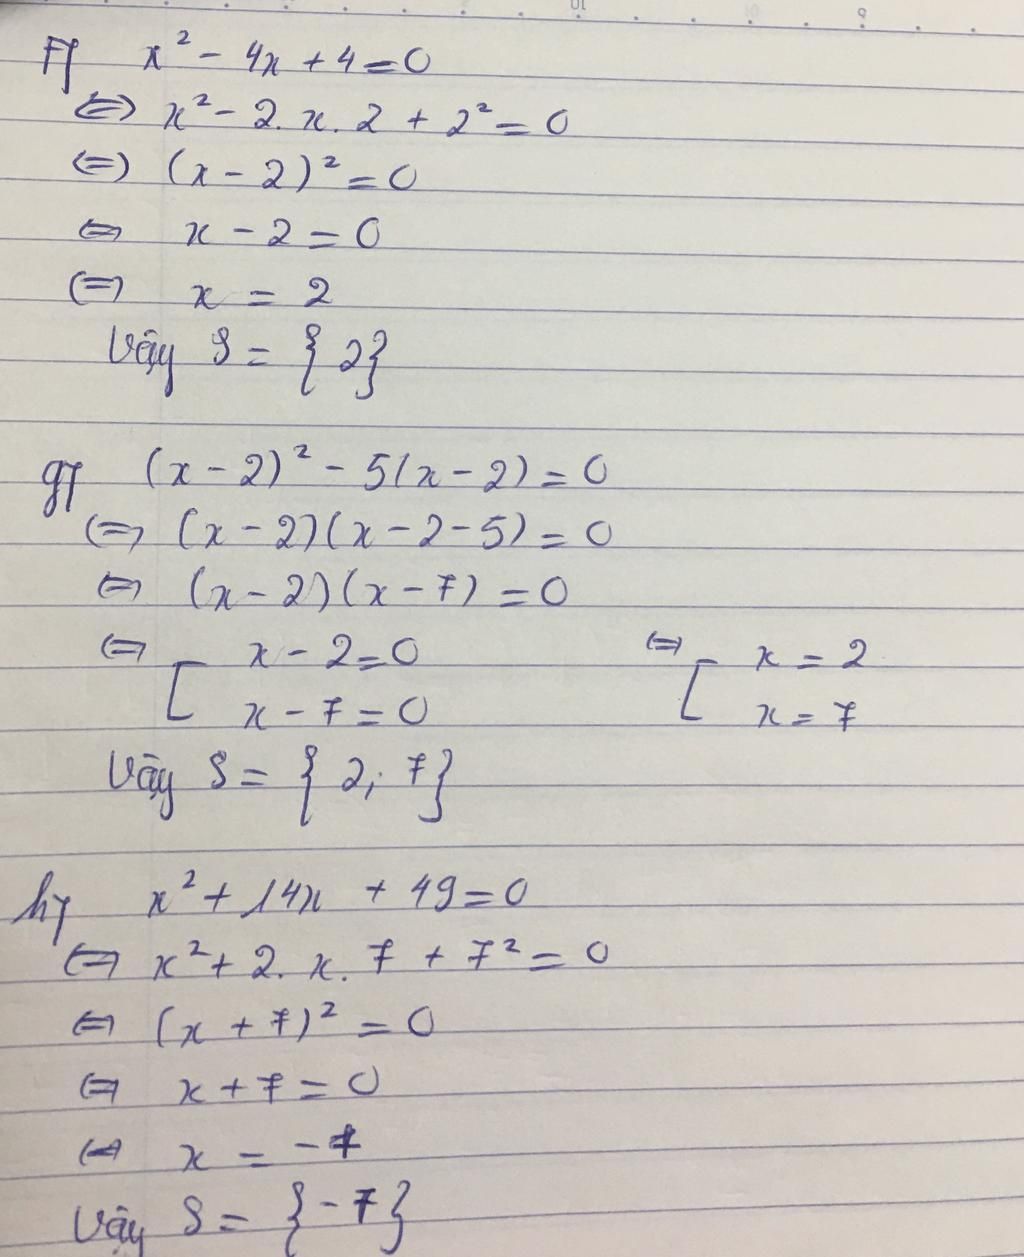 f) x² - 4x + 4 = 0
⇔ x² - 2. x. 2 + 2² = 0
⇔ (x - 2)² = 0
⇔ x - 2 = 0
⇔ x = 2
Vậy S = { 2}
g) (x - 2)² - 5(x - 2) = 0
⇔ (x - 2)(x - 2 - 5) = 0
⇔ (x - 2)(x - 7) = 0
⇔ [ x - 2 = 0 ⇔ [ x = 2
x - 7 = 0 x = 7
Vậy S = { 2; 7}
h) x² + 14x + 49 = 0
⇔ x² + 2. x. 7 + 7² = 0
⇔ (x + 7)² = 0
⇔ x + 7 = 0
⇔ x = -7
Vậy S = {-7}